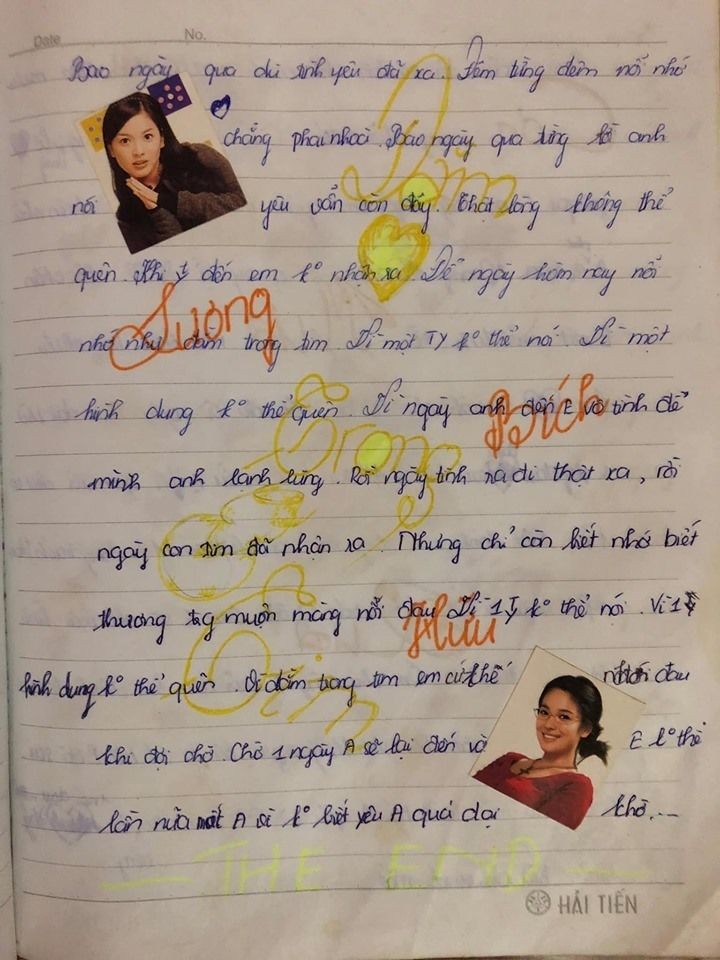 Date No.
Bao ngày qua dù tình yêu đã xa. Đêm từng đêm nỗi nhớ
chẳng phai nhoà. Bao ngày qua từng lời anh
nói yêu vẫn còn đây. Thật lòng không thể
quên. Khi Ty đến em ko nhận ra. Để ngày hôm nay nỗi
nhớ như dằm trong tim. Vì một TY ko thể nói. Vì một
hình dung ko thể quên. Vì ngày anh đến E vô tình để
mình anh lạnh lùng. Rồi ngày tình ra đi thật xa, rồi
ngày con tim đã nhận ra. Nhưng chỉ còn biết nhớ biết
thương tng muộn màng nỗi đau. Vì 1 Ty ko thể nói. Vì 1
hình dung ko thể quên. Vì dằm trong tim em cứ thế nhói đau
khi đợi chờ. Chờ 1 ngày A sẽ lại đến và E ko thể
lần nữa mất A vì ko biết yêu A quá dại khờ...
Dằm
Trong
Tim
Lương
Bích
Hữu
THE END
HẢI TIẾN